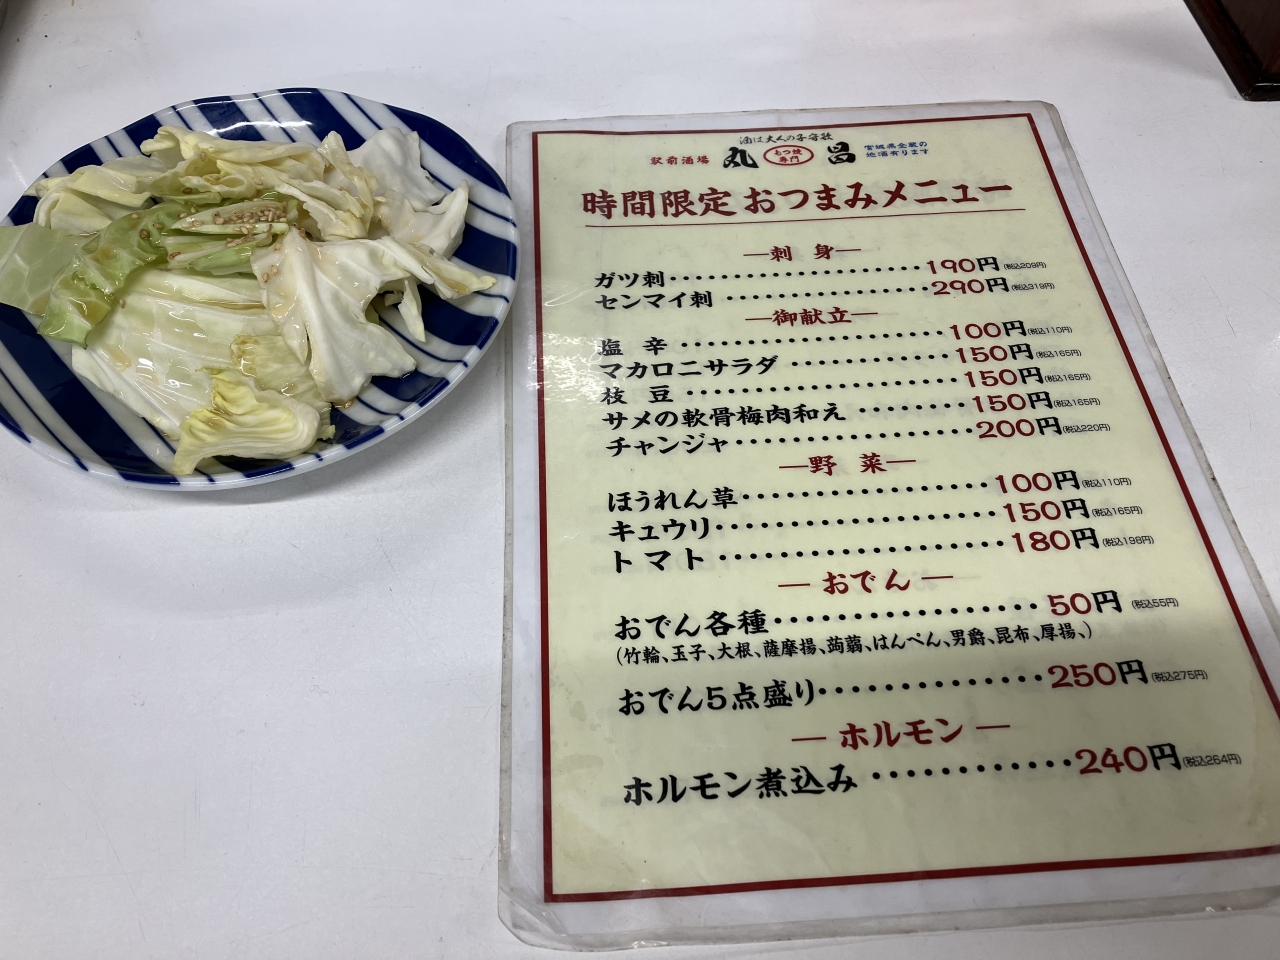 酒は大人の子守歌
駅前酒場 丸昌 もつ焼専門 宮城県全蔵の地酒有ります
時間限定 おつまみメニュー
刺身
ガツ刺 190円 (税込209円)
センマイ刺 290円 (税込319円)
御献立
塩辛 100円 (税込110円)
マカロニサラダ 150円 (税込165円)
枝豆 150円 (税込165円)
サメの軟骨梅肉和え 150円 (税込165円)
チャンジャ 200円 (税込220円)
野菜
ほうれん草 100円 (税込110円)
キュウリ 150円 (税込165円)
トマト 180円 (税込198円)
おでん
おでん各種 50円 (税込55円)
(竹輪、玉子、大根、薩摩揚、蒟蒻、はんぺん、男爵、昆布、厚揚、)
おでん5点盛り 250円 (税込275円)
ホルモン
ホルモン煮込み 240円 (税込264円)